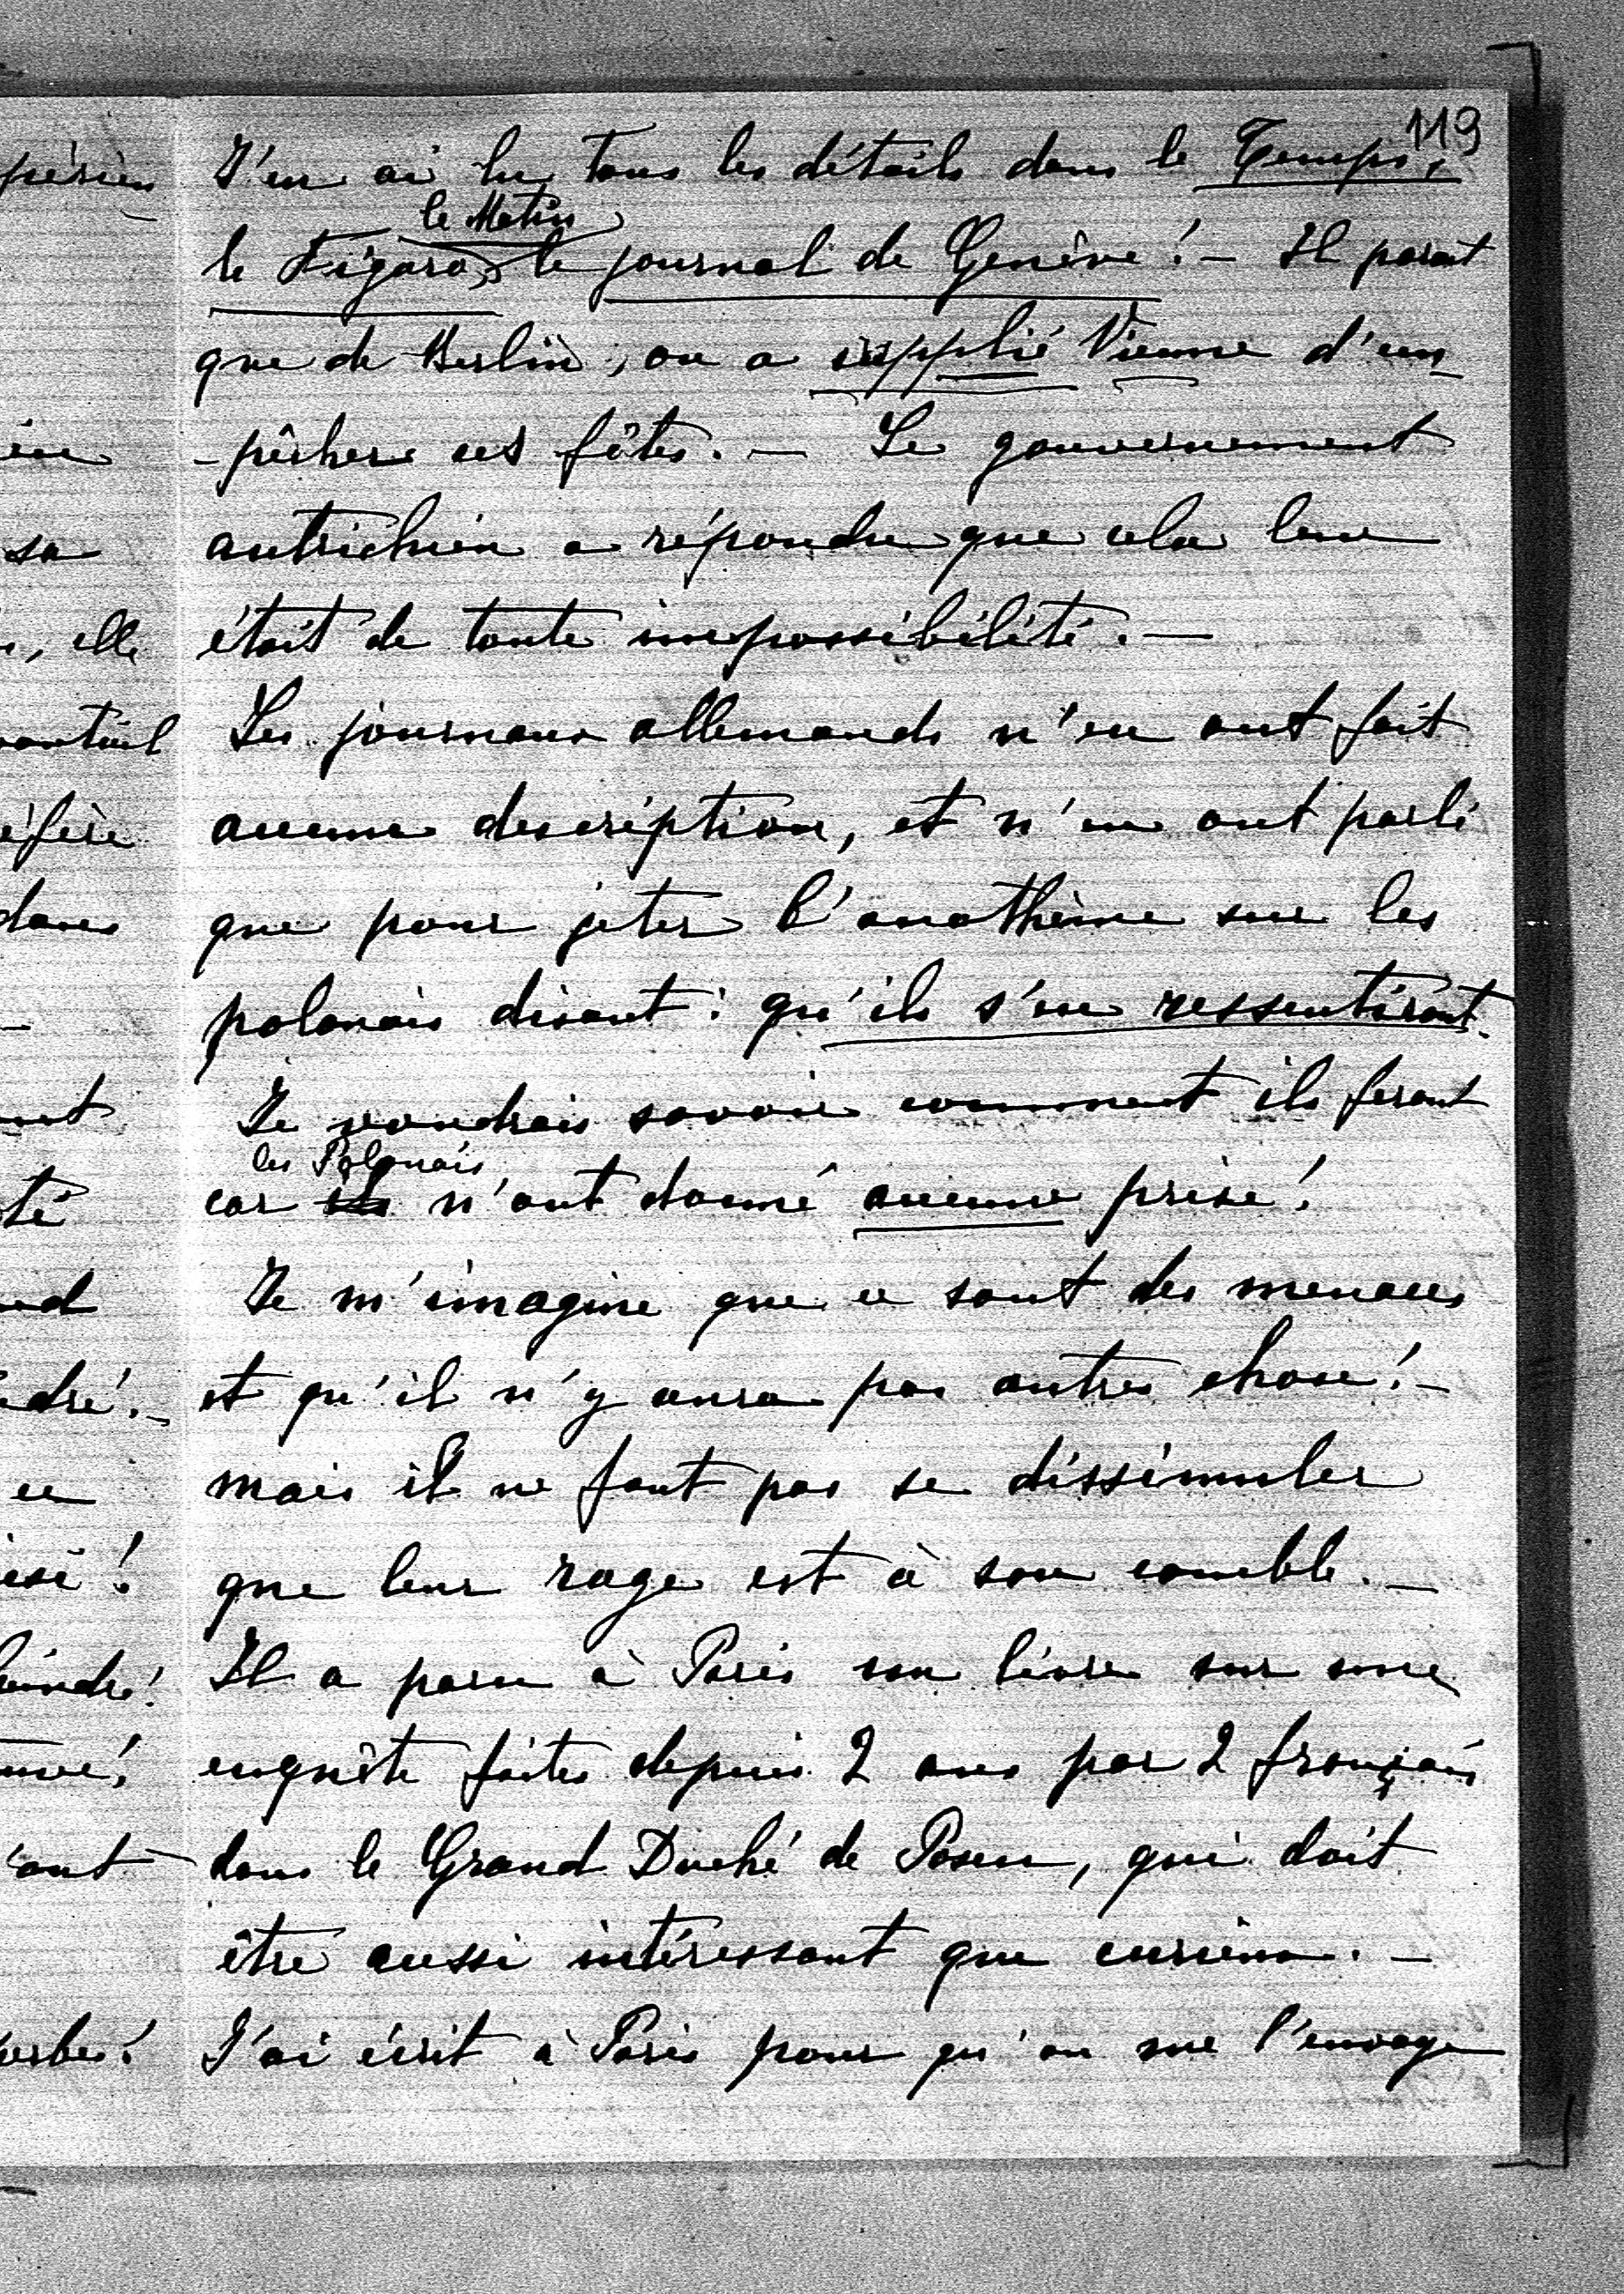 119
J'en ai lu tous les détails dans le Temps,
le Matin
le Figaro, le journal de Genève! - Il parait
que de Berlin, on a supplié Vienne d'em
-pêcher ces fêtes. — Le gouvernement
autrichien a répondu que cela leur
était de toute impossibilité. —
Les journaux allemands n'en ont fait
aucune description, et n'en ont parlé
que pour jeter l'anathème sur les
polonais disant: qu'ils s'en ressentiront.
Je voudrais savoir comment ils feront
les Polonais
car ils n'ont donné aucune prise!
Je m'imagine que ce sont des menaces
et qu'il n'y aura pas autres chose! -
mais il ne faut pas se dissimuler
que leur rage est à son comble. —
Il a paru à Paris un livre sur une
enquête faites depuis 2 ans par 2 français
dans le Grand Duché de Posen, qui doit
être aussi intéressant que curieux. —
J'ai écrit à Paris pour qu'on me l'envoye